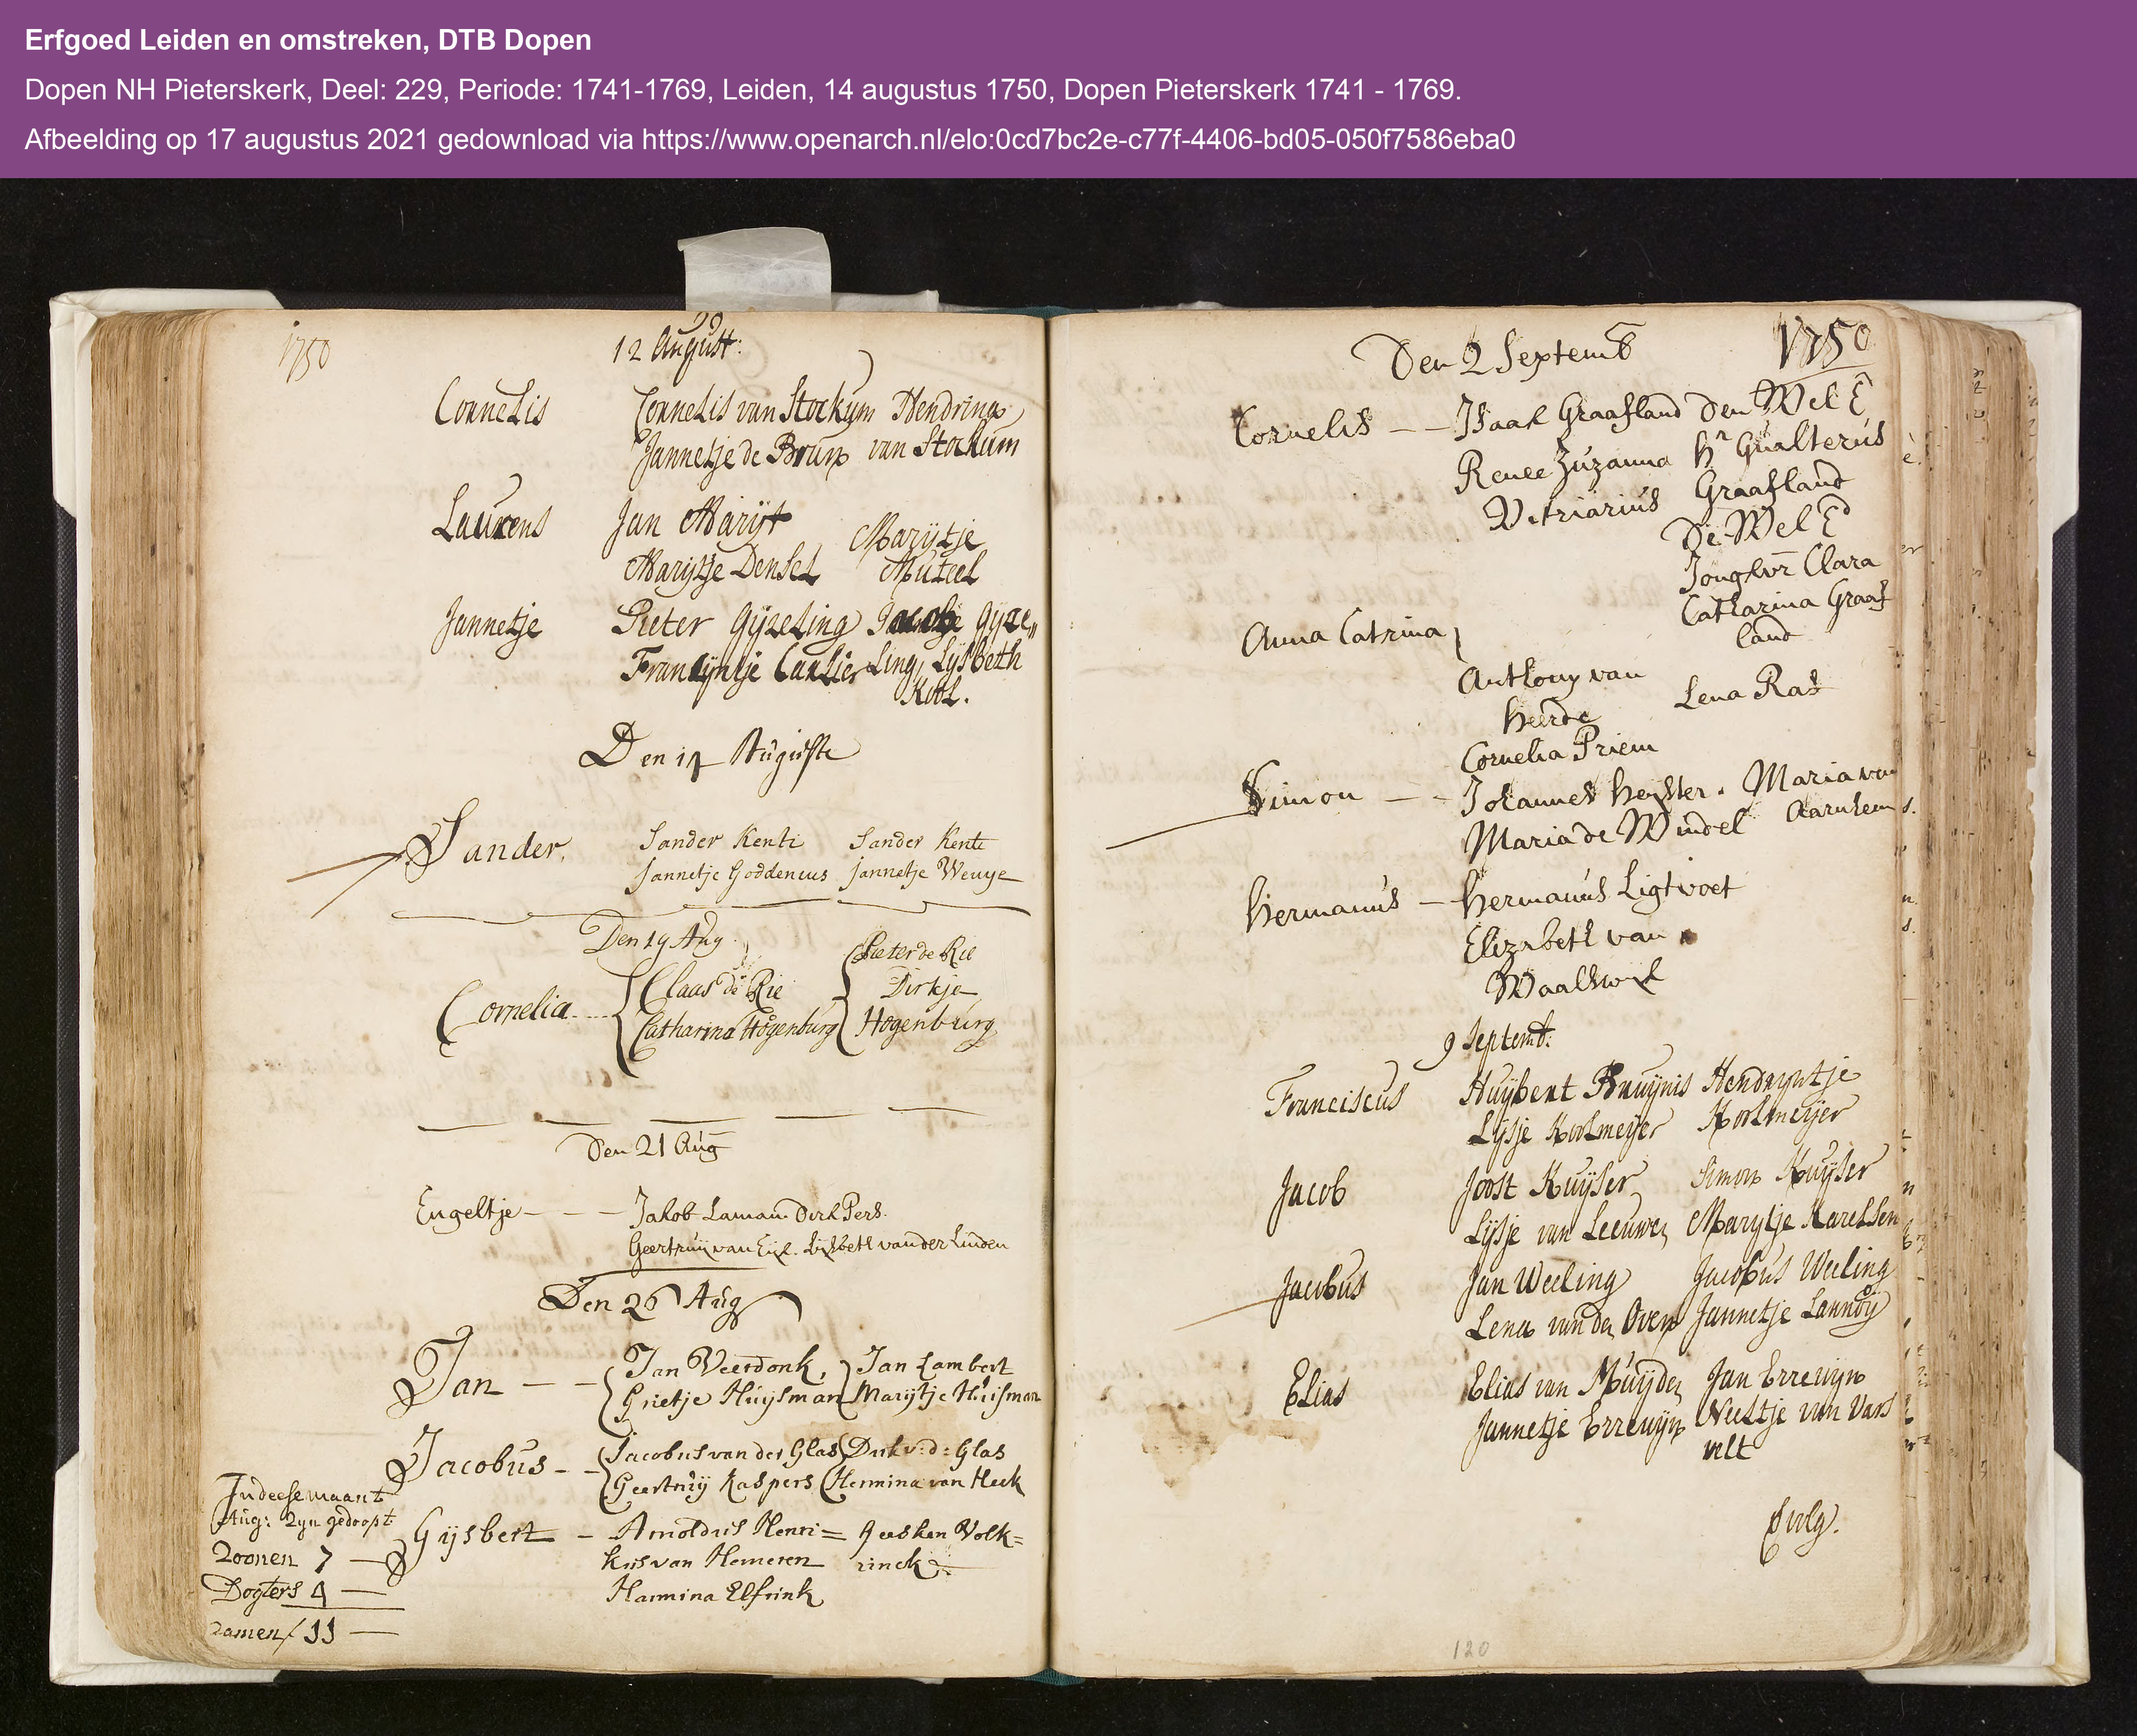 Erfgoed Leiden en omstreken, DTB Dopen
Dopen NH Pieterskerk, Deel: 229, Periode: 1741-1769, Leiden, 14 augustus 1750, Dopen Pieterskerk 1741 - 1769.
Afbeelding op 17 augustus 2021 gedownload via https://www.openarch.nl/elo:0cd7bc2e-c77f-4406-bd05-050f7586eba0
1750
12 August:
Cornelis Cornelis van Stockum Hendrina
Jannetje de Bruin van Stockum
Laurens Jan Marijt Marijtje
Marijtje Densel Muteel
Jannetje Pieter Gijzeling Jacobje Gijze„
Francijntje Carlier Ling, Lijsbeth
Kool.
Den 14 Auguste
Sander. Sander Kenti Sander Kenti
Jannetje Goddeneus Jannetje Wenye
Den 19 Aug
Pieter de Rie
Claas de Rie Dirkje
Cornelia
Catharina Hogenburg Hogenburg
Den 21 Aug
Engeltje - - - Jakob Laman Dirk Pers.
Geertruy van Eijk. Lijsbeth van der Linden
Den 26 Aug
Jan - - Jan Veerdonk, Jan Lambert
Grietje Huijsman Marijtje Huisman
Jacobus - - Jacobus van der Glas Dirk v: d: Glas
Geertruij Kaspers Hermina van Heek
Gijsbert - Arnoldus Henri= Geesken Volk=
kus van Hemeren rinck
Harmina Elfrink
In deese maant
Aug: zyn gedoopt
Zoonen 7 —
Dogters 4 —
zamen / 11 —
Den 2 Septemb 1750
Cornelis - - Isaak Graafland Den Wel E
Renee Zuzanna Hr Gualterus
Vitriarius Graafland
De Wel Ed
Jonghvr Clara
Catharina Graaf
land
Anna Catrina
Anthony van
Heerde Lena Ras
Cornelia Priem
Simon - - Johannes Heyster. Maria van
Maria de Windel Aarnhem
Hermanus - Hermanus Ligtvoet
Elizabeth van
Waalswijk
9 Septemb:
Franciscus Huijbert Bruijnis Hendrijntje
Lijsje Koolmeijer Koolmeijer
Jacob Joost Kuijser Simon Kuijser
Lijsje van Leeuwen Marijtje Karelsen
Jacobus Jan Weeling Jacobus Weeling
Lena van der Oven Jannetje Lannoij
Elias Elias van Muijden Jan Errewijn
Jannetje Errewijn Neeltje van Vars
velt
vulg.
120